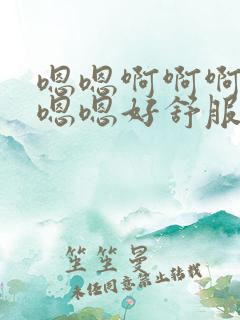 嗯嗯啊啊啊
嗯嗯好舒服
笙笙曼
未经同意禁止转载